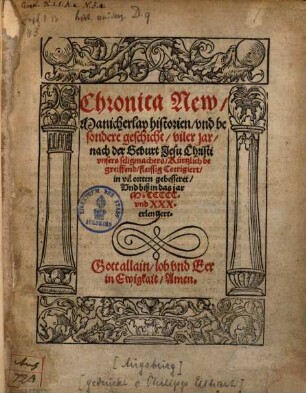 Chronica New/
Manicherlay historien/ vnd be
sondere geschicht/ viler jar/
nach der Geburt Jesu Christi
vnsers seligmachers/ Kürtzlich be
greiffend/ fleissig Corrigiert/
in vil orten gebesseret/
Vnd biß in das jar
M. CCCCC.
vnd XXX.
erlengert.
Gott allain/ lob vnd Eer
in Ewigkait/ Amen.
[Augsburg]
[gedruckt v. Philipp Ulhart]